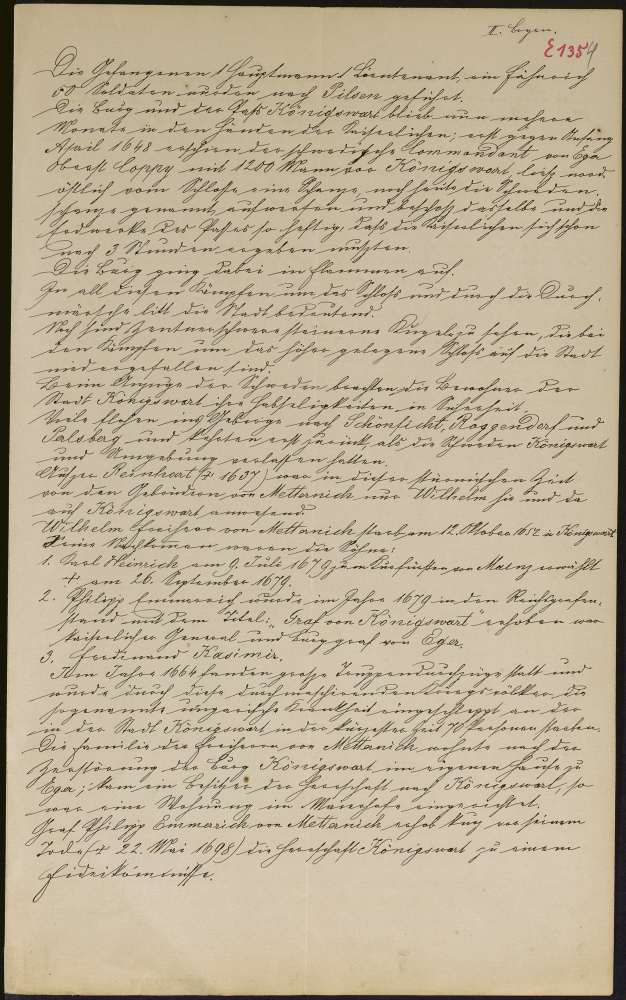 II. Bogen.
E 1354
Die Gefangenen 1 Hauptmann 1 Lieutenant, ein Fähnrich
50 Soldaten wurden nach Pilsen geführt.
Die Burg und der Paß Königswart blieb nun mehrere
Monate in den Händen der Kaiserlichen; erst gegen Anfang
April 1648 erschien der schwedische Commandant von Eger
Oberst Coppy mit 1200 Mann vor Königswart, ließ nord-
östlich vom Schlosse eine Schanze, noch heute die Schweden-
schanze genannt, aufwerfen und beschoß dasselbe und die
Erdwerke des Passes so heftig, daß die Kaiserlichen sich schon
nach 3 Stunden ergeben mußten.
Die Burg ging dabei in Flammen auf.
In all diesen Kämpfen um das Schloß und durch die Durch-
märsche litt die Stadt bedeutend.
Noch sind zentnerschwere steinerne Kugeln zu sehen, die bei
den Kämpfen um das höher gelegene Schloß auf die Stadt
niedergefallen sind.
Beim Anzuge der Schweden brachten die Bewohner der
Stadt Königswart ihre Habseligkeiten in Sicherheit.
Viele flohen ins Gebirge nach Schönficht, Roggendorf und
Palsberg und kehrten erst heim, als die Schweden Königswart
und Umgebung verlassen hatten.
Außer Reinhart († 1637) war in dieser stürmischen Zeit
von den Gebrüdern von Metternich nur Wilhelm hie und da
auf Königswart anwesend.
Wilhelm Freiherr von Mettanich starb am 12. Oktober 1652 in Königswart
Seine Nachkommen waren die Söhne:
1. Karl Heinrich am 9. Juli 1679 zum Kurfürsten von Mainz erwählt
† am 26. September 1679.
2. Philipp Emmerich wurde im Jahre 1679 in den Reichsgrafen-
stand mit dem Titel: „Graf von Königswart" erhoben war
kaiserlicher General und Burggraf von Eger.
3. Ferdinand Kasimir.
Im Jahre 1664 fanden große Truppendurchzüge statt und
wurde durch diese durchmarschierenden Kriegsvölker die
sogenannte ungarische Krankheit eingeschleppt an der
in der Stadt Königswart in der kürzesten Zeit 70 Personen starben.
Die Familie der Freiherrn von Mettanich wohnte nach der
Zerstörung der Burg Königswart im eigenen Hause zu
Eger; kam ein Besitzer der Herrschaft nach Königswart, so
war eine Wohnung im Maierhofe eingerichtet.
Graf Philipp Emmerich von Mettanich erhob kurz vor seinem
Tode († 22. Mai 1698) die Herrschaft Königswart zu einem
Fideikommisse.